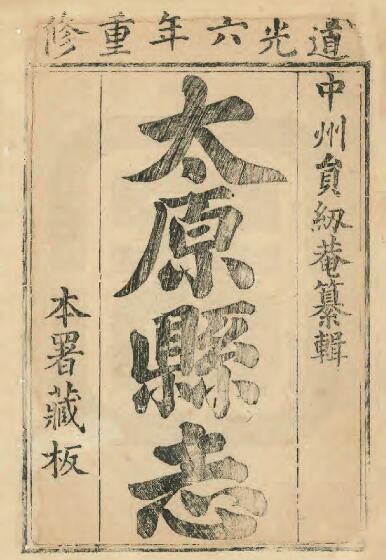 道光六年重修
中州員紉菴纂輯
太原縣志
本署藏板